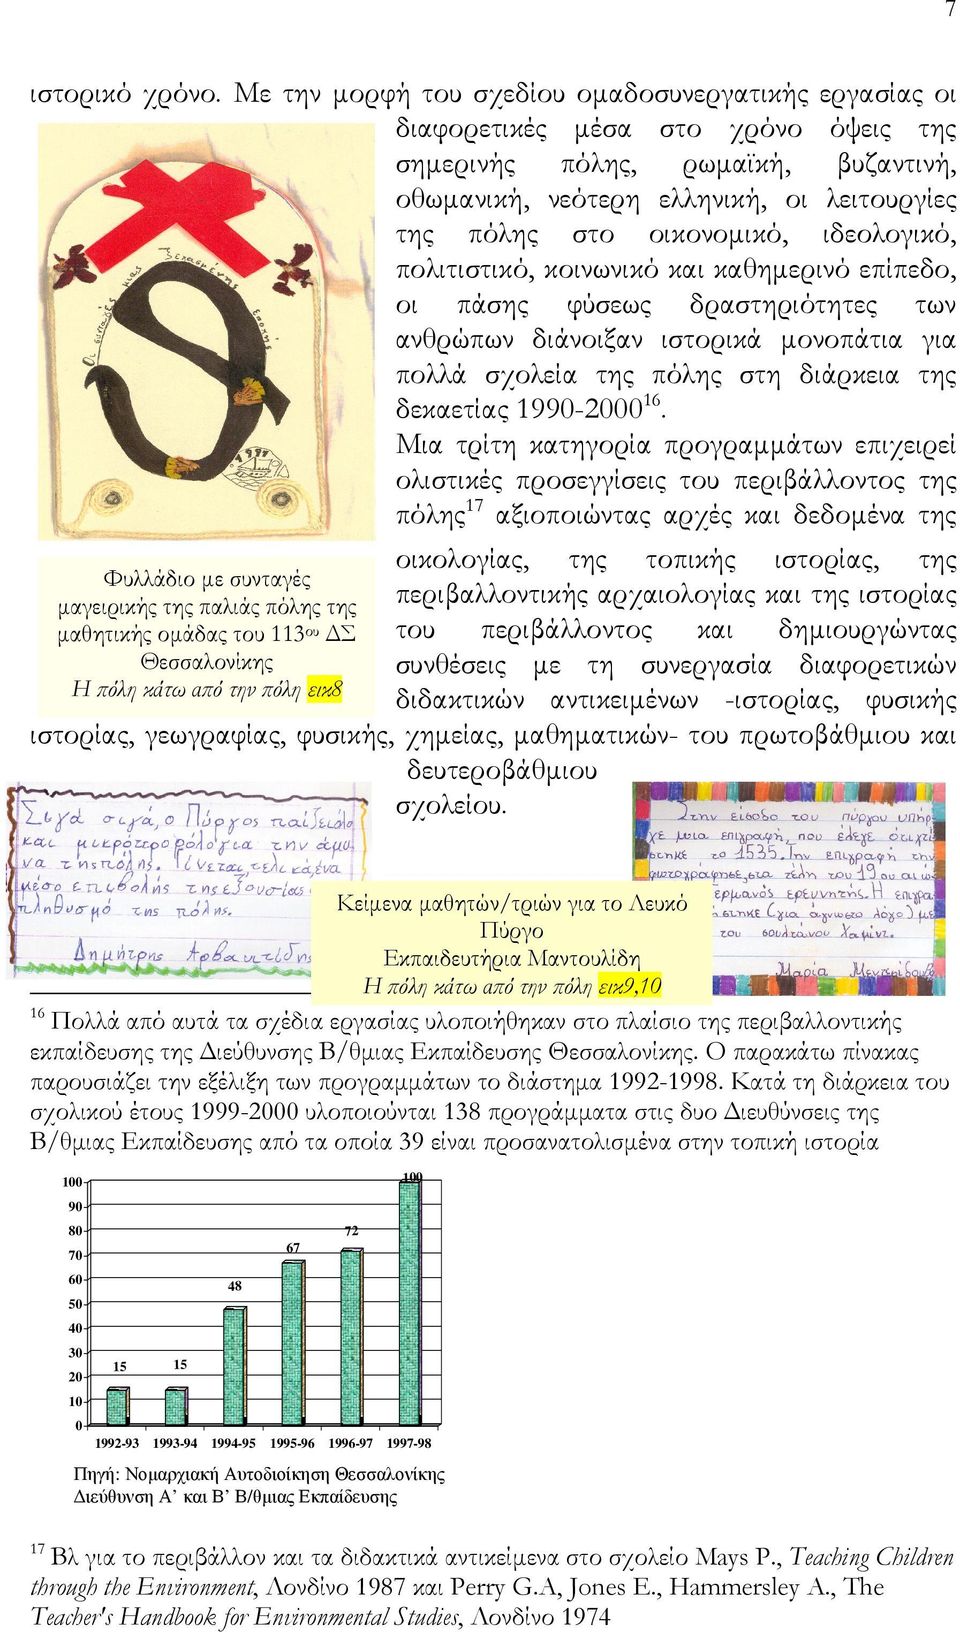 7
ιστορικό χρόνο. Με την μορφή του σχεδίου ομαδοσυνεργατικής εργασίας οι
διαφορετικές μέσα στο χρόνο όψεις της
σημερινής πόλης, ρωμαϊκή, βυζαντινή,
οθωμανική, νεότερη ελληνική, οι λειτουργίες
της πόλης στο οικονομικό, ιδεολογικό,
πολιτιστικό, κοινωνικό και καθημερινό επίπεδο,
οι πάσης φύσεως δραστηριότητες των
ανθρώπων διάνοιξαν ιστορικά μονοπάτια για
πολλά σχολεία της πόλης στη διάρκεια της
δεκαετίας 1990-2000 16.
Μια τρίτη κατηγορία προγραμμάτων επιχειρεί
ολιστικές προσεγγίσεις του περιβάλλοντος της
πόλης17 αξιοποιώντας αρχές και δεδομένα της
οικολογίας, της τοπικής ιστορίας, της
περιβαλλοντικής αρχαιολογίας και της ιστορίας
του περιβάλλοντος και δημιουργώντας
συνθέσεις με τη συνεργασία διαφορετικών
διδακτικών αντικειμένων -ιστορίας, φυσικής
ιστορίας, γεωγραφίας, φυσικής, χημείας, μαθηματικών- του πρωτοβάθμιου και
δευτεροβάθμιου
σχολείου.
Οι συνταγές μιας ξεχασμένης εποχής
1997
Φυλλάδιο με συνταγές
μαγειρικής της παλιάς πόλης της
μαθητικής ομάδας του 113ου ΔΣ
Θεσσαλονίκης
Η πόλη κάτω από την πόλη εικ8
Σιγά σιγά, ο Πύργος παίζει όλο
και μικρότερο ρόλο για την άμυ-
να της πόλης. Γίνεται, τελικά, ένα
μέσο επιβολής της εξουσίας σ
πληθυσμό της πόλης.
Δημήτρης Αρβανιτίδης
Στην είσοδο του πύργου υπήρ-
χε μια επιγραφή, που έλεγε ότι χτί
στηκε το 1535. Την επιγραφή την
φωτογράφησε, στα τέλη του 19ου αιώ
ερμανός ερευνητής. Η επιγρα
άστηκε (για άγνωστο λόγο) με
του σουλτάνου Χαμίντ.
Μαρία
Κείμενα μαθητών/τριών για το Λευκό
Πύργο
Εκπαιδευτήρια Μαντουλίδη
Η πόλη κάτω από την πόλη εικ9,10
16 Πολλά από αυτά τα σχέδια εργασίας υλοποιήθηκαν στο πλαίσιο της περιβαλλοντικής
εκπαίδευσης της Διεύθυνσης Β/θμιας Εκπαίδευσης Θεσσαλονίκης. Ο παρακάτω πίνακας
παρουσιάζει την εξέλιξη των προγραμμάτων το διάστημα 1992-1998. Κατά τη διάρκεια του
σχολικού έτους 1999-2000 υλοποιούνται 138 προγράμματα στις δυο Διευθύνσεις της
Β/θμιας Εκπαίδευσης από τα οποία 39 είναι προσανατολισμένα στην τοπική ιστορία
100
90
80
70
60
50
40
30
20
10
0
15 15 48 67 72 100
1992-93 1993-94 1994-95 1995-96 1996-97 1997-98
Πηγή: Νομαρχιακή Αυτοδιοίκηση Θεσσαλονίκης
Διεύθυνση Α’ και Β’ Β/θμιας Εκπαίδευσης
17 Βλ για το περιβάλλον και τα διδακτικά αντικείμενα στο σχολείο Mays P., Teaching Children
through the Environment, Λονδίνο 1987 και Perry G.A, Jones E., Hammersley A., The
Teacher's Handbook for Environmental Studies, Λονδίνο 1974